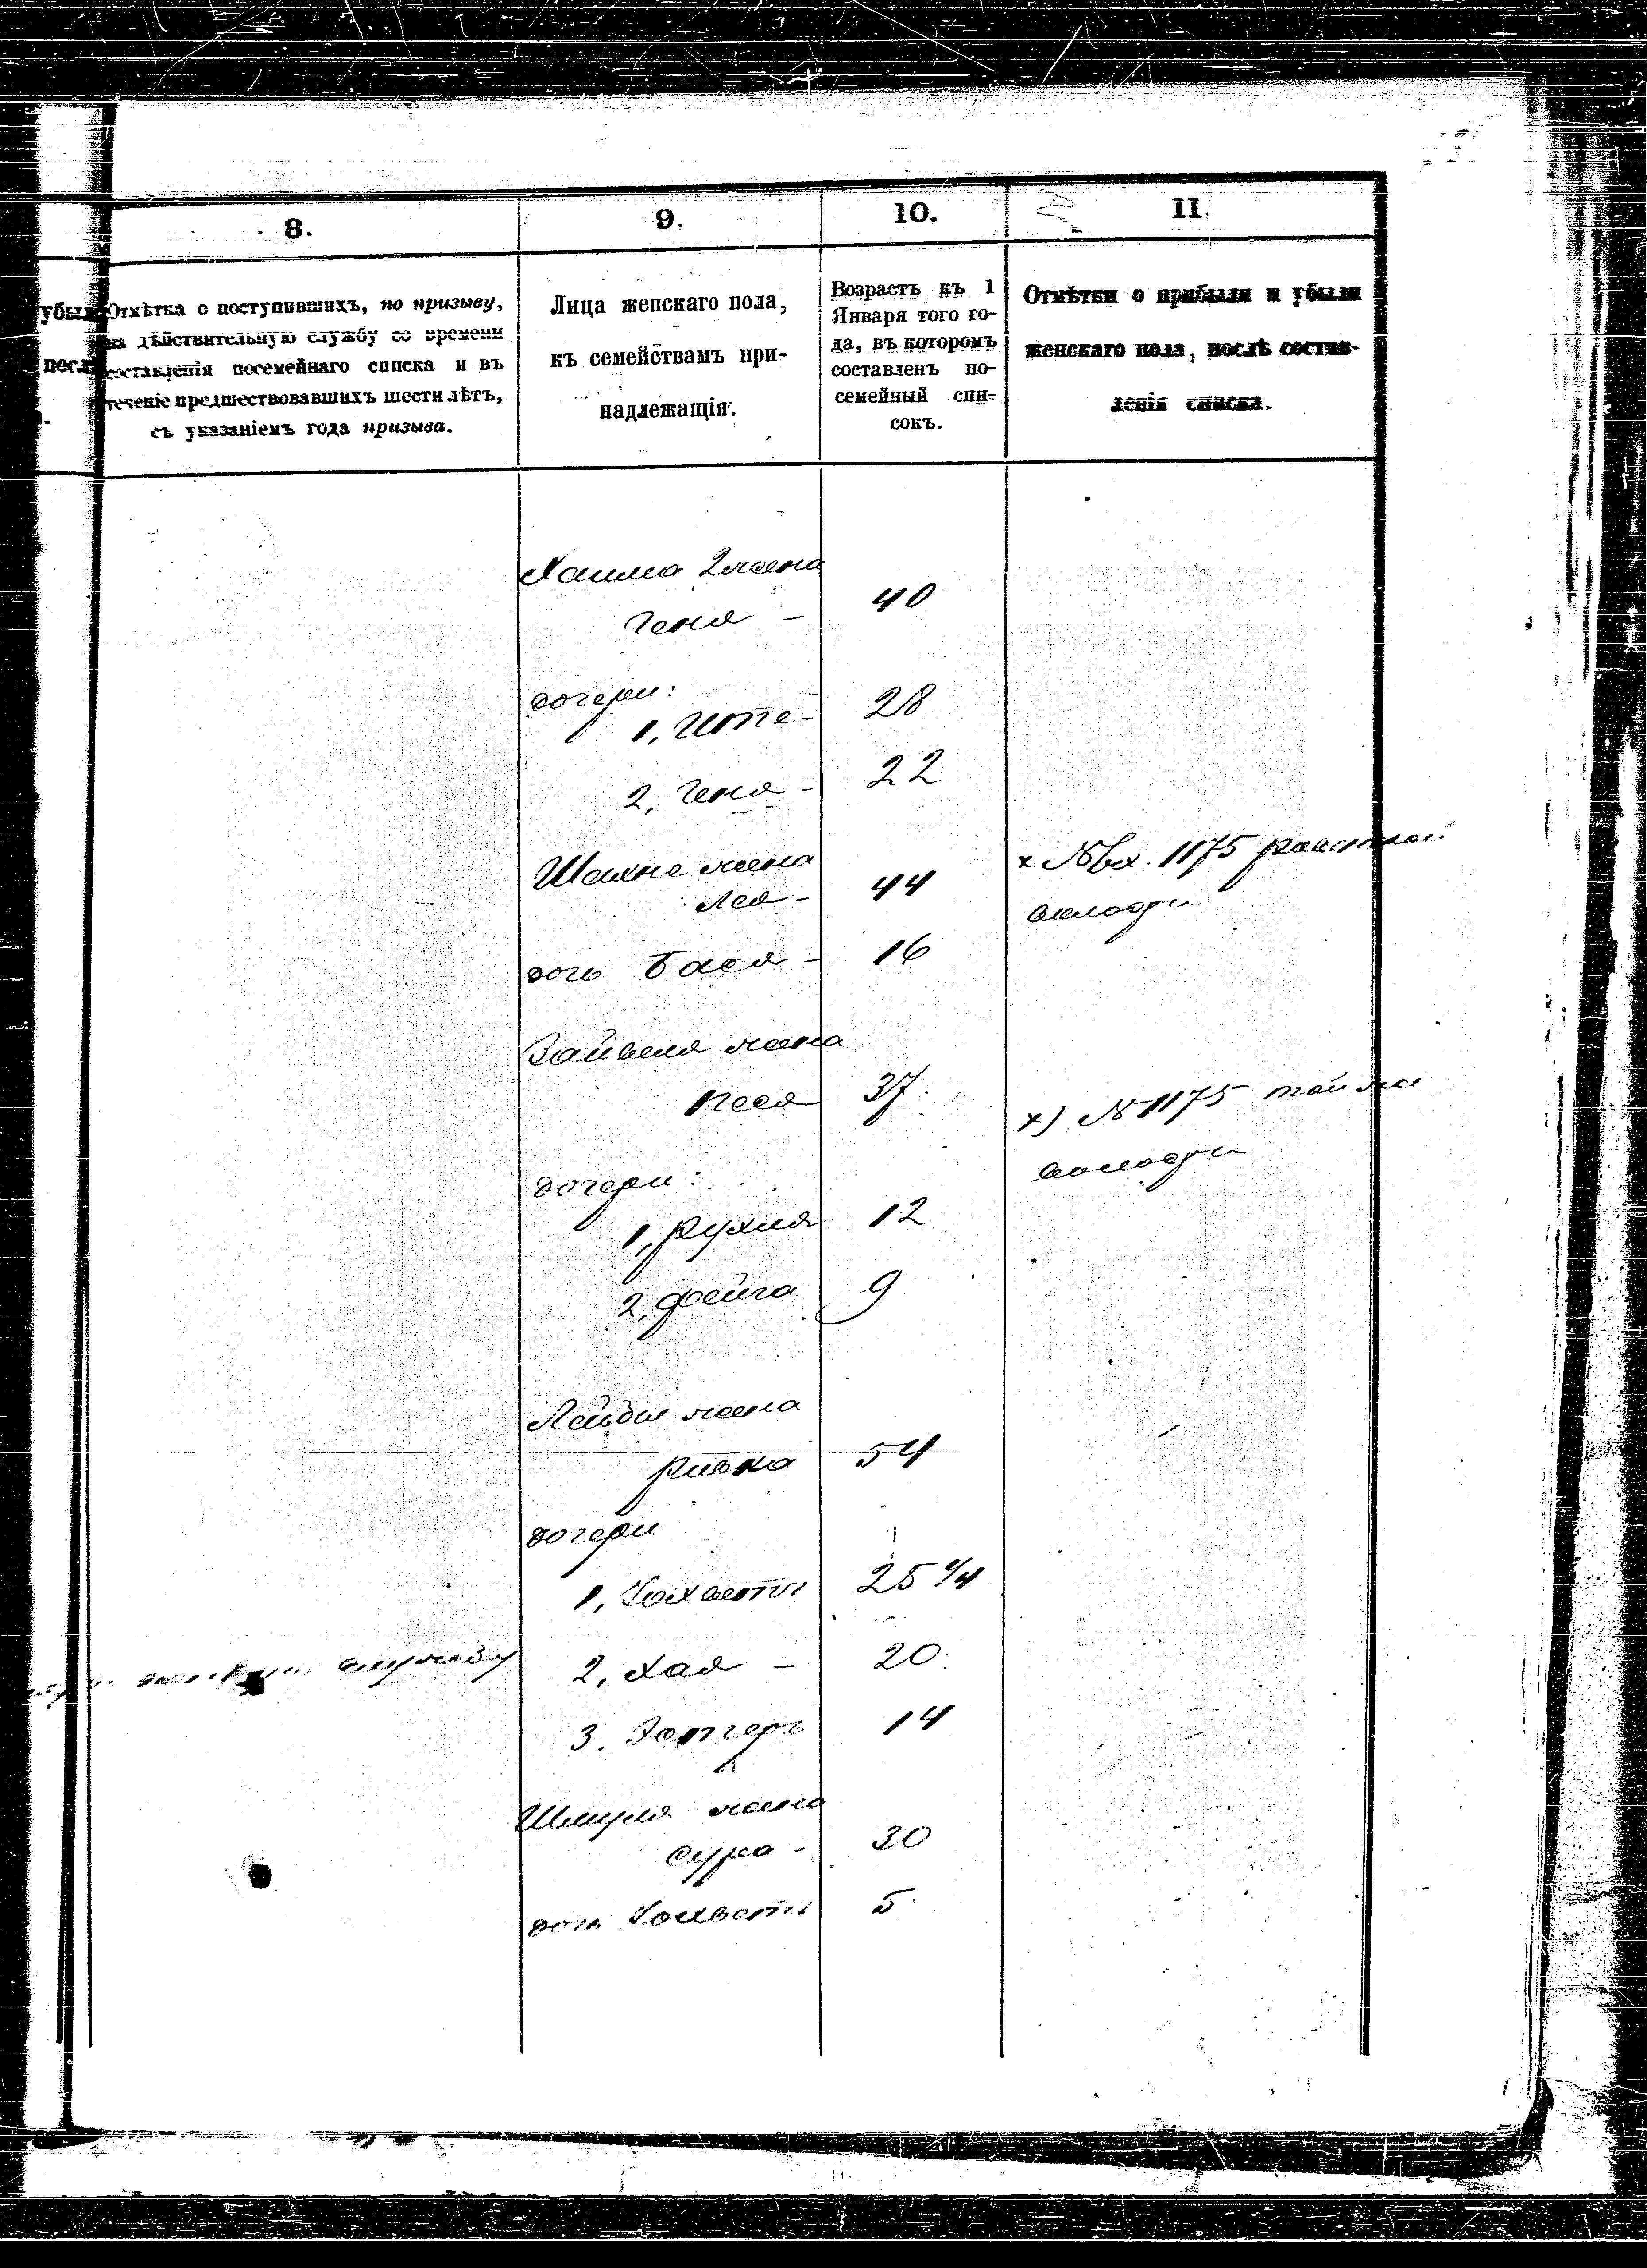 8.
9.
10.
11.
убыли
посл
Отмѣтка о поступившихъ, по призыву,
на дѣйствительную службу со времени
составленія посемейнаго списка и въ
теченіе предшествовавшихъ шести лѣтъ,
съ указаніемъ года призыва.
Лица женскаго пола,
къ семействамъ при-
надлежащія.
Возрастъ къ 1
Января того го-
да, въ которомъ
составленъ по-
семейный спи-
сокъ.
Отмѣтки о прибыли и убыли
женскаго пола, послѣ состав-
ленія списка.
Хаима жена
Геня - 40
дочери:
1, Ите - 28
2, Геня - 22
Шахне жена
Лея - 44
x № вх. 1175
дочь Бася - 16
Зайвеля жена
Песя 37
x) № 1175 той же
дочери:
1, Рухля 12
2, Фейга 9
Лейбы жена
Ривка 54
дочери
1, Іохветъ 25 1/4
службу
2, Хая - 20
3. Эстеръ 14
Шмуля жена
Сура - 30
дочь Іохветъ 5